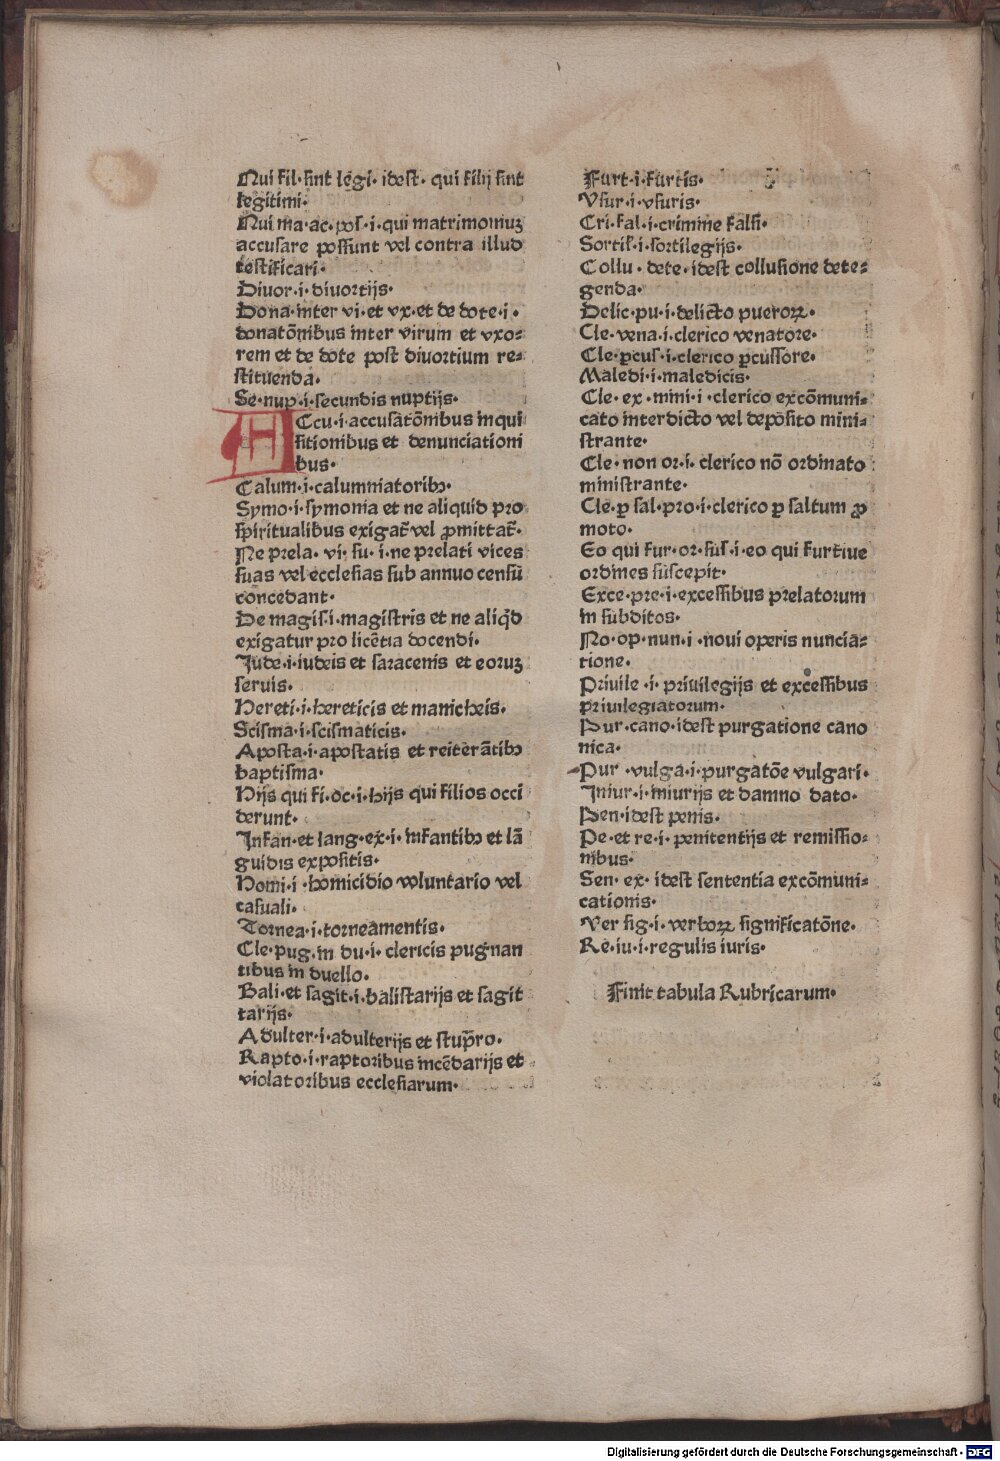 Qui fil·sint legi·idest·qui filij sint
legitimi·
Qui ma·ac·pos·i·qui matrimoniuꝫ
accusare possunt vel contra illud
testificari·
Diuor·i·diuortijs·
Dona·inter vi·et vx·et de dote·i·
donatōnibus inter virum et vxo⸗
rem et de dote post diuortium re⸗
stituenda·
Se·nup·i·secundis nuptijs·
ACcu·i·accusatōnibus inqui
sitionibus et denunciationi
bus·
Calum·i·calumniatoribꝫ·
Symo·i·symonia et ne aliquid pro
spiritualibus exigat̄ vel ꝓmittat̄·
Ne prela·vi·su·i·ne prelati vices
suas vel ecclesias sub annuo censū
concedant·
De magis·i·magistris et ne aliq̇d
exigatur pro licētia docendi·
Jude·i·iudeis et saracenis et eoruꝫ
seruis·
Hereti·i·hereticis et manicheis·
Scisma·i·scismaticis·
Aposta·i·apostatis et reiterātibꝫ
baptisma·
Hijs qui fi·oc·i·hijs qui filios occi
derunt·
Infan·et lang·ex·i·infantibꝫ et lā
guidis expositis·
Homi·i·homicidio voluntario vel
casuali·
Tornea·i·torneamentis·
Cle·pug·in du·i·clericis pugnan
tibus in duello·
Bali·et sagit·i·balistarijs et sagit
tarijs·
Adulter·i·adulterijs et stupro·
Rapto·i·raptoribus incēdarijs et
violatoribus ecclesiarum·
Furt·i·furtis·
Vsur·i·vsuris·
Cri·fal·i·crimine falsi·
Sortil·i·sortilegijs·
Collu·dete·idest collusione dete⸗
genda·
Delic·pu·i·delicto pueroꝝ·
Cle·vena·i·clerico venatore·
Cle·ꝑcus·i·clerico ꝑcussore·
Maledi·i·maledicis·
Cle·ex·mini·i·clerico excōmuni⸗
cato interdicto vel deposito mini⸗
strante·
Cle·non or·i·clerico nō ordinato
ministrante·
Cle·ꝑ sal·pro·i·clerico ꝑ saltum ꝓ
moto·
Eo qui fur·or·sus·i·eo qui furtiue
ordines suscepit·
Exce·pre·i·excessibus prelatorum
in subditos·
No·op·nun·i·noui operis nuncia⸗
tione·
Priuile·i·priuilegijs et excessibus
priuilegiatorum·
Pur·cano·idest purgatione cano
nica·
Pur·vulga·i·purgatōe vulgari·
Iniur·i·iniurijs et damno dato·
Pen·idest penis·
Pe·et re·i·penitentijs et remissio⸗
nibus·
Sen·ex·idest sententia excōmuni⸗
cationis·
Ver sig·i·verboꝝ significatōne·
Re·iu·i·regulis iuris·
Finit tabula Rubricarum·
Digitalisierung gefördert durch die Deutsche Forschungsgemeinschaft - DFG